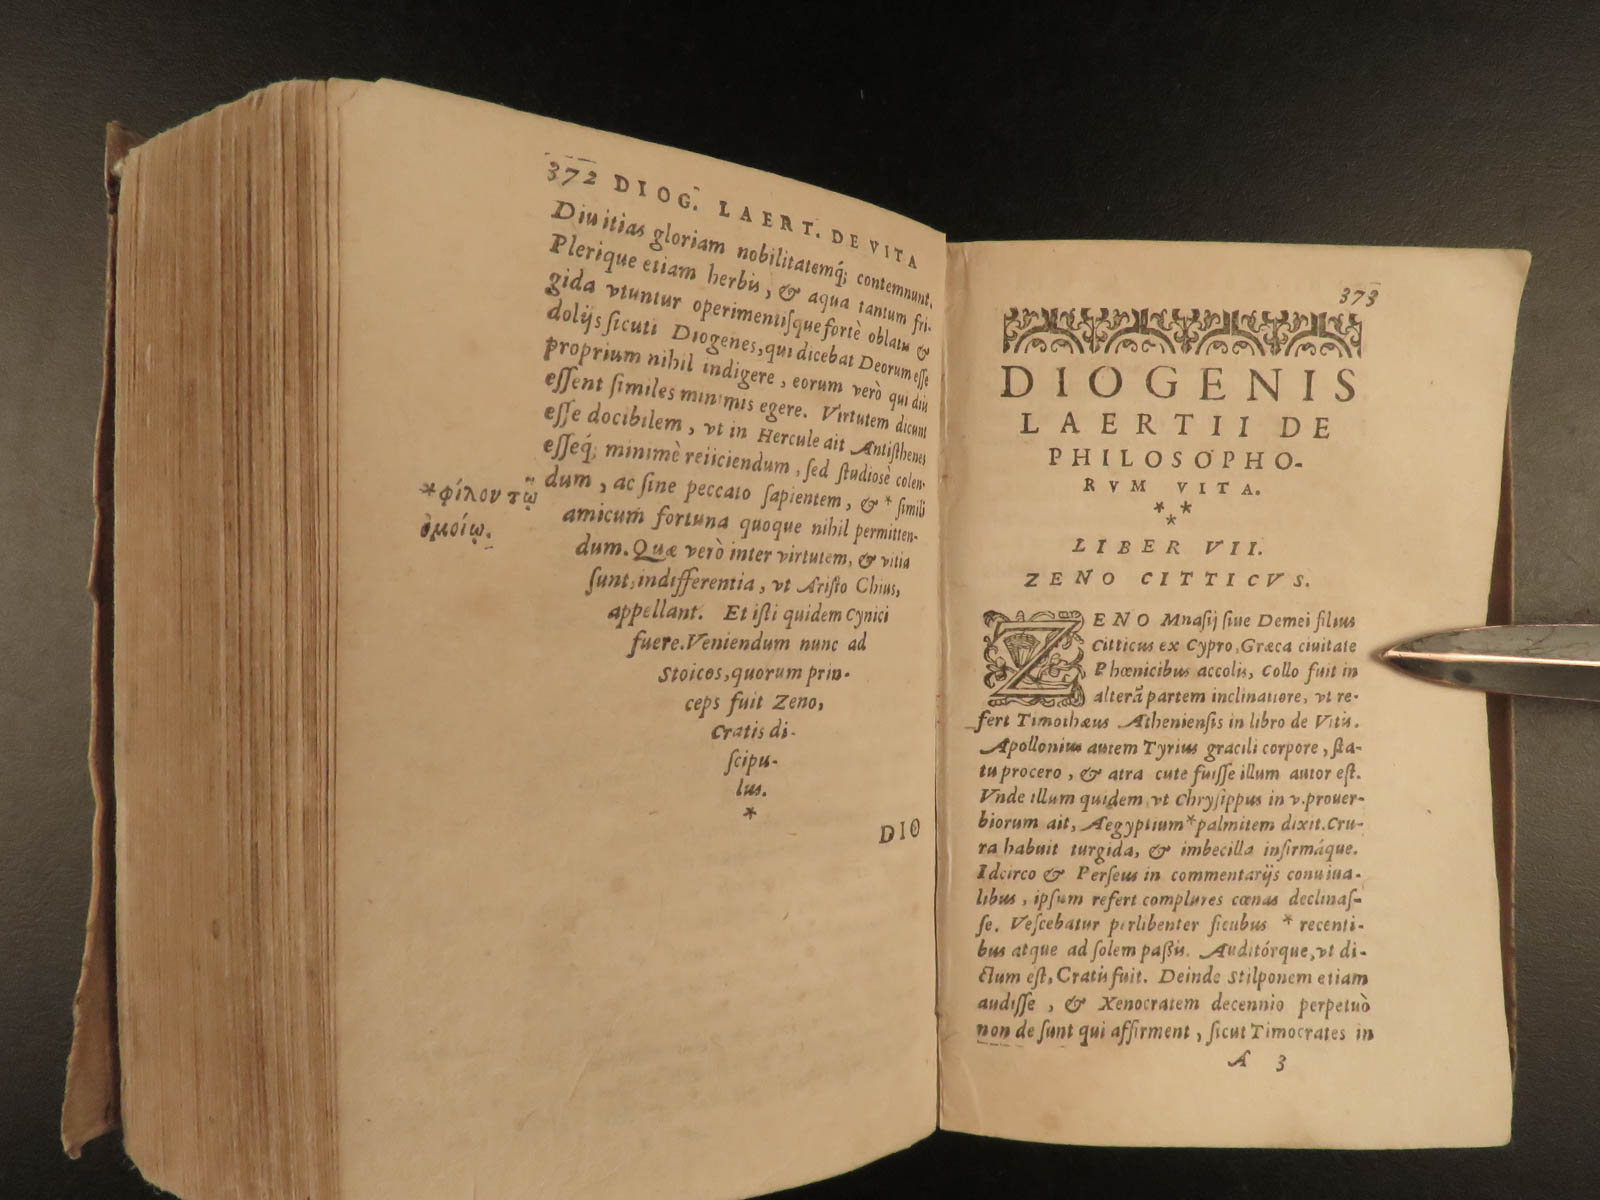 372 DIOG. LAERT. DE VITA
Diuitias gloriam nobilitatemq́; contemnunt.
Plerique etiam herbis, & aqua tantum fri-
gida vtuntur operimentisque fortè oblatis &
dolijs sicuti Diogenes, qui dicebat Deorum esse
proprium nihil indigere, eorum verò qui diis
essent similes minimis egere. Virtutem dicunt
esse docibilem, vt in Hercule ait Antisthenes
esseq́; minimè reiiciendum, sed studiosè colen-
dum, ac sine peccato sapientem, & * simili
amicum fortuna quoque nihil permitten-
dum. Quæ verò inter virtutem, & vitia
sunt, indifferentia, vt Aristo Chius,
appellant. Et isti quidem Cynici
fuere. Veniendum nunc ad
Stoicos, quorum prin-
ceps fuit Zeno,
Cratis di-
scipu-
lus.
*
*φίλον τῷ
ὁμοίῳ.
DIO
373
DIOGENIS
LAERTII DE
PHILOSOPHO-
RVM VITA.
***
LIBER VII.
ZENO CITTICVS.
ZENO Mnasij siue Demei filius
Citticus ex Cypro, Græca ciuitate
Phœnicibus accolis, Collo fuit in
alterā partem inclinatiore, vt re-
fert Timothæus Atheniensis in libro de Vitis.
Apollonius autem Tyrius gracili corpore, sta-
tu procero, & atra cute fuisse illum autor est.
Vnde illum quidem, vt Chrysippus in v. prouer-
biorum ait, Aegyptium * palmitem dixit. Cru-
ra habuit turgida, & imbecilla infirmáque.
Idcirco & Perseus in commentarijs conuiua-
libus, ipsum refert complures cœnas declinas-
se. Vescebatur perlibenter ficubus * recenti-
bus atque ad solem passis. Auditórque, vt di-
ctum est, Cratis fuit. Deinde Stilponem etiam
audisse, & Xenocratem decennio perpetuò
non desunt qui affirment, sicut Timocrates in
A 3